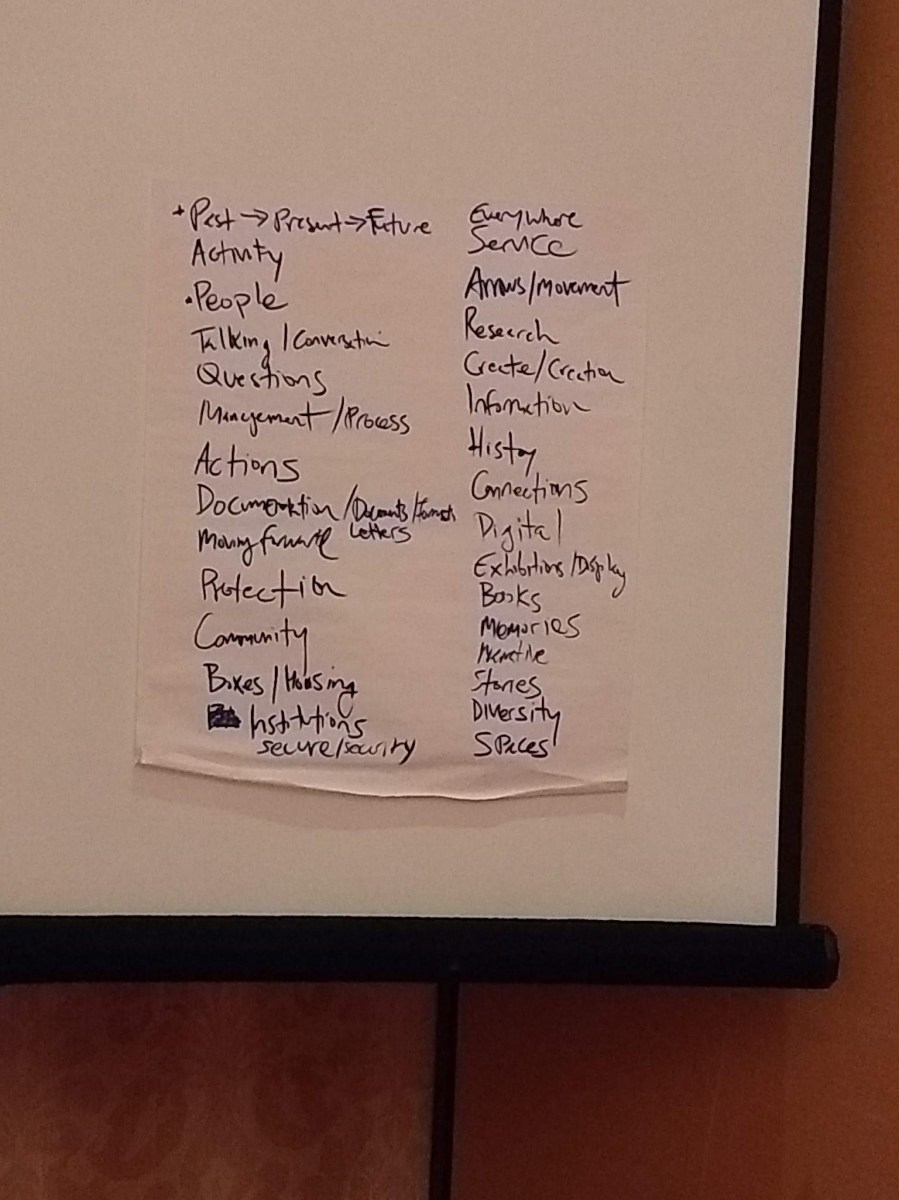 + Past → Present → Future
Activity
• People
Talking / Conversation
Questions
Management / Process
Actions
Documentation / Documents / Formats
Letters
Moving forward
Protection
Community
Boxes / Housing
Institutions
Secure/security
Everywhere
Service
Arrows/movement
Research
Create/Creation
Information
History
Connections
Digital
Exhibitions / Display
Books
Memories
Narrative
Stories
Diversity
Spaces